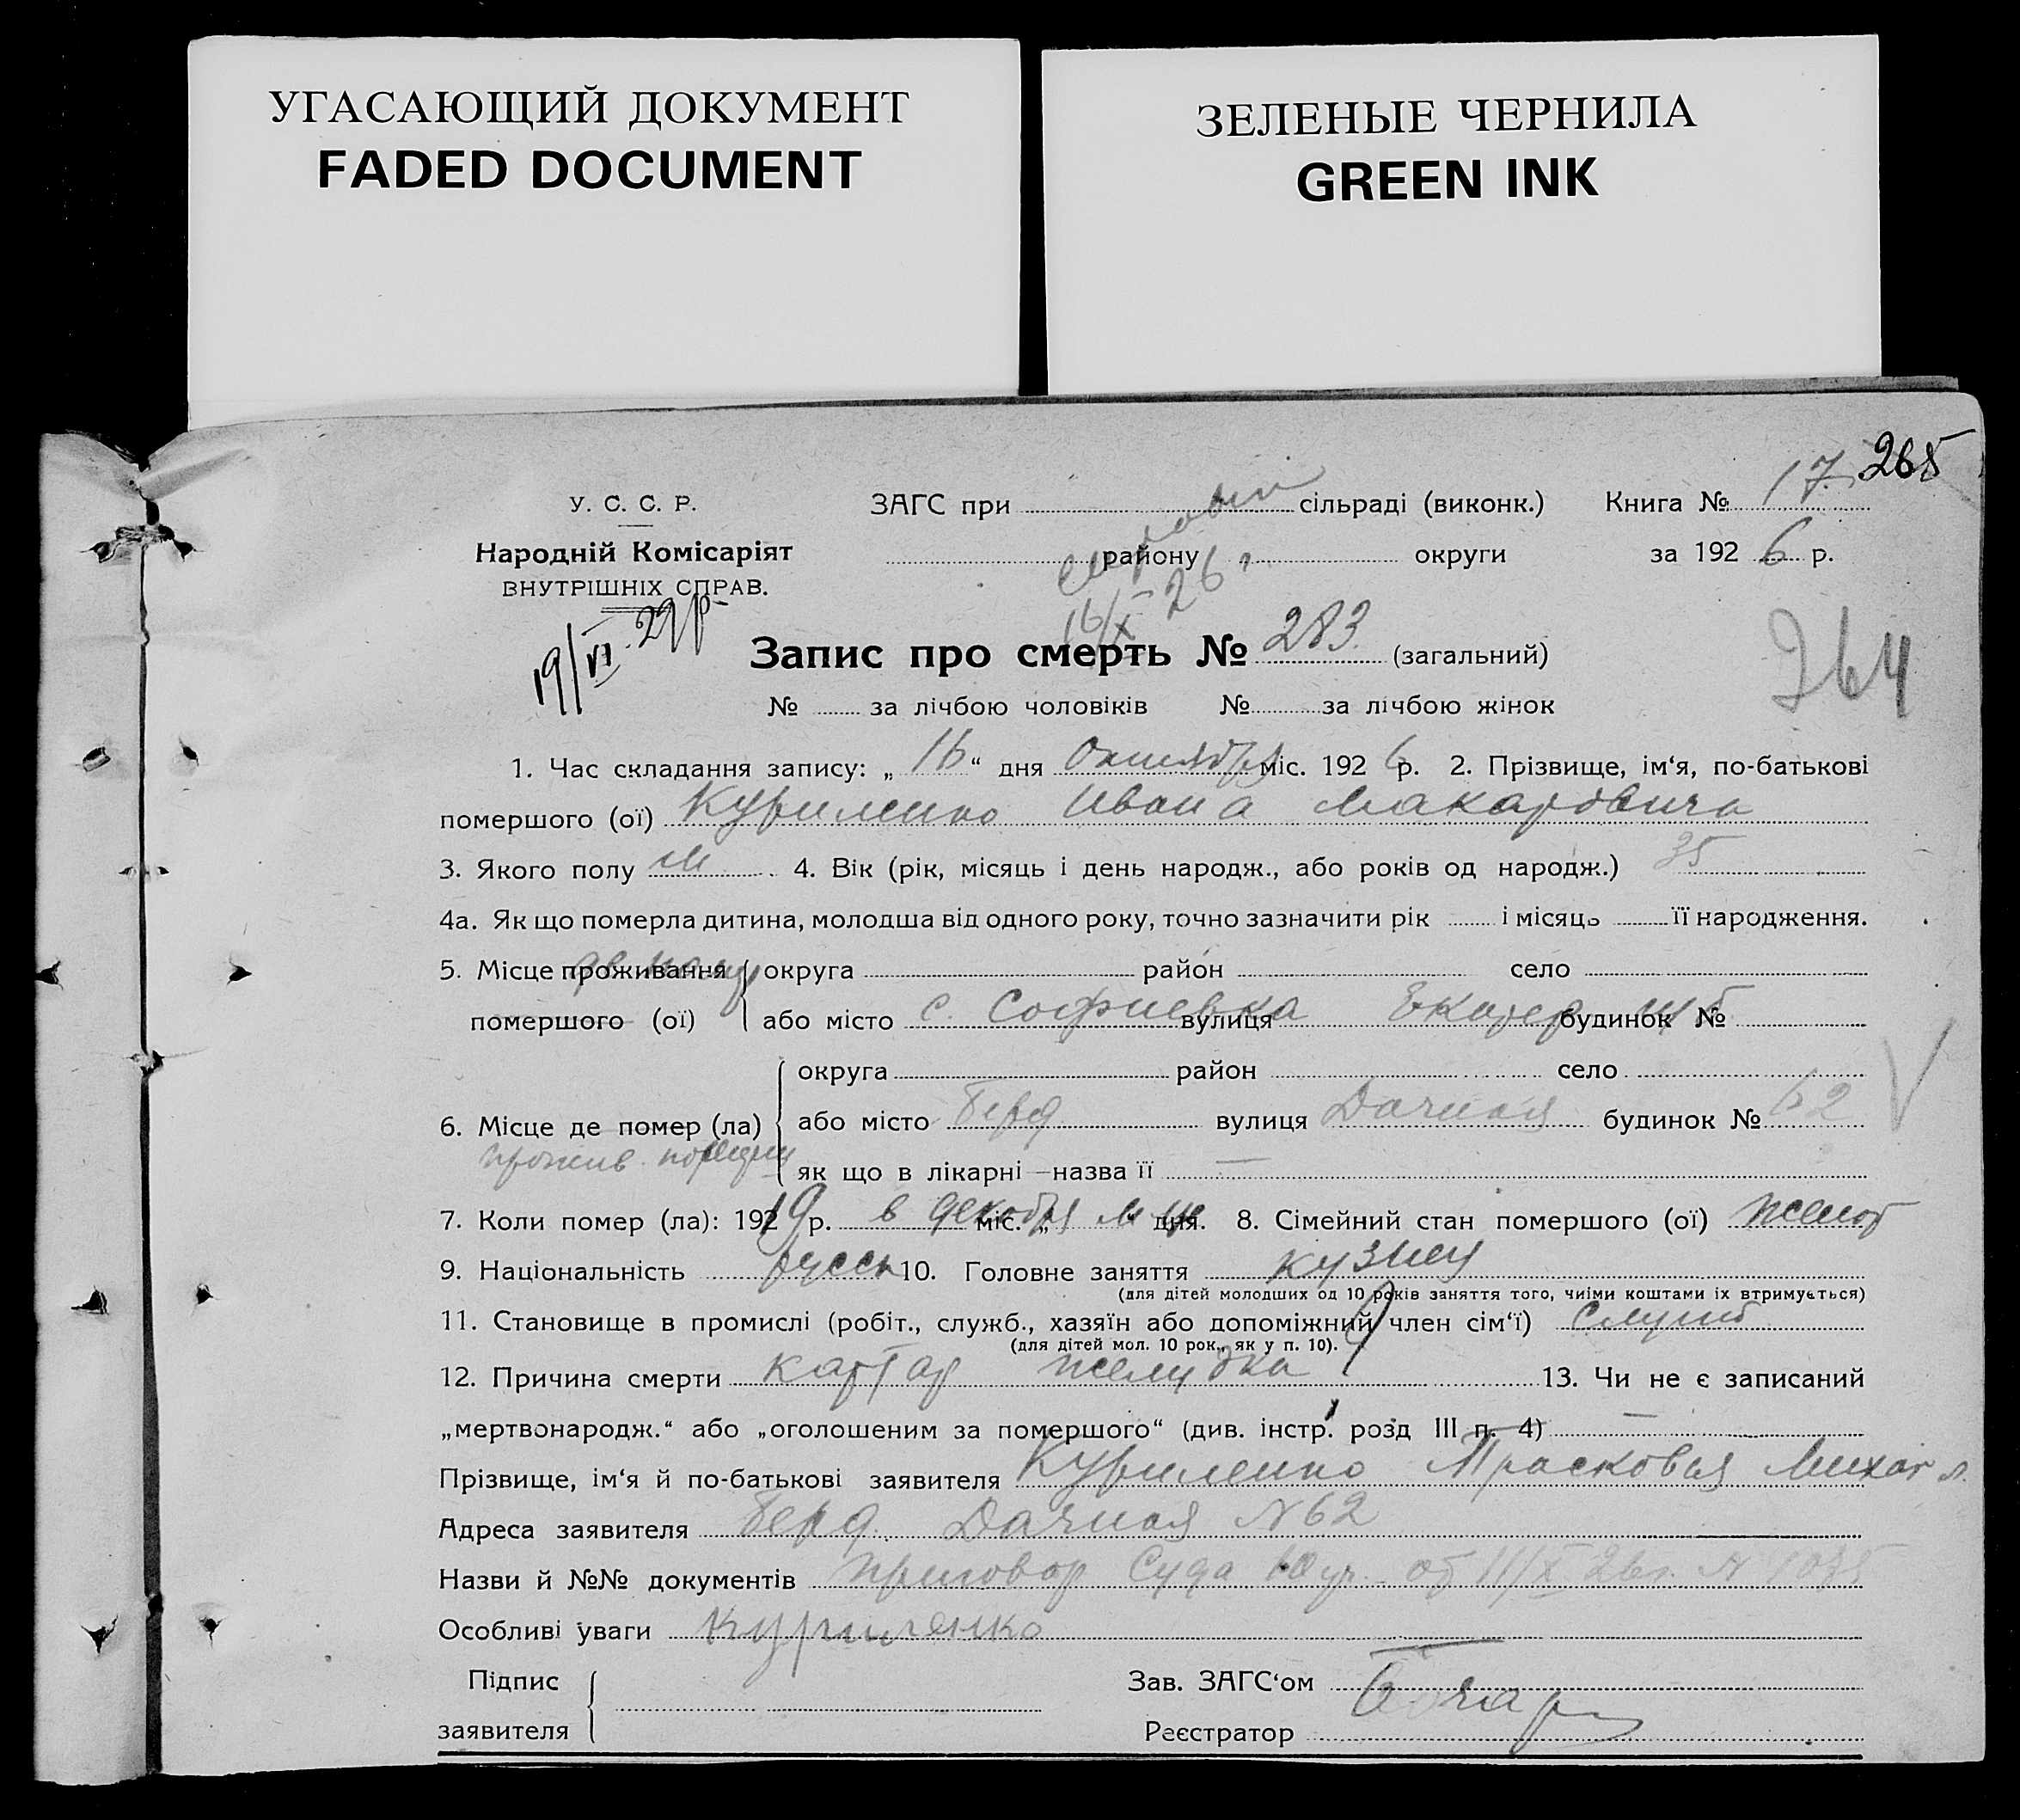 УГАСАЮЩИЙ ДОКУМЕНТ
FADED DOCUMENT
ЗЕЛЕНЫЕ ЧЕРНИЛА
GREEN INK
265
У. С. С. Р.
ЗАГС при сільраді (виконк.) Книга № 17
Народній Комісаріят
ВНУТРІШНІХ СПРАВ.
району округи за 192 6 р.
16/X 26 г.
19/VI 29 р
Запис про смерть № 283 (загальний)
264
№ за лічбою чоловіків № за лічбою жінок
1. Час складання запису: „ 16 “ дня Октября міс. 192 6 р. 2. Прізвище, ім‘я, по-батькові
помершого (ої) Куриленко Ивана Макаровича
3. Якого полу м 4. Вік (рік, місяць і день народж., або років од народж.) 35
4а. Як що померла дитина, молодша від одного року, точно зазначити рік і місяць її народження.
5. Місце проживання округа район село
помершого (ої) або місто с. Софиевка вулиця Екатер будинок №
округа район село
6. Місце де помер (ла) або місто Берд вулиця Дачная будинок № 62
як що в лікарні — назва її —
7. Коли помер (ла): 192 19 р. в декабря міс. „ м це дня. 8. Сімейний стан помершого (ої) женат
9. Національність русск 10. Головне заняття кузнец
(для дітей молодших од 10 років заняття того, чиїми коштами їх втримується)
11. Становище в промислі (робіт., служб., хазяїн або допоміжний член сім‘ї)
(для дітей мол. 10 рок., як у п. 10).
12. Причина смерти катар желудка 13. Чи не є записаний
„мертвонародж.“ або „оголошеним за помершого“ (див. інстр. розд III п. 4) —
Прізвище, ім‘я й по-батькові заявителя Куриленко Прасковья Михайл.
Адреса заявителя Берд. Дачная № 62
Назви й №№ документів приговор Суда 10 уч. от 11/X 26 г. № 1035
Особливі уваги Куриленко
Підпис
заявителя
Зав. ЗАГС‘ом
Реєстратор